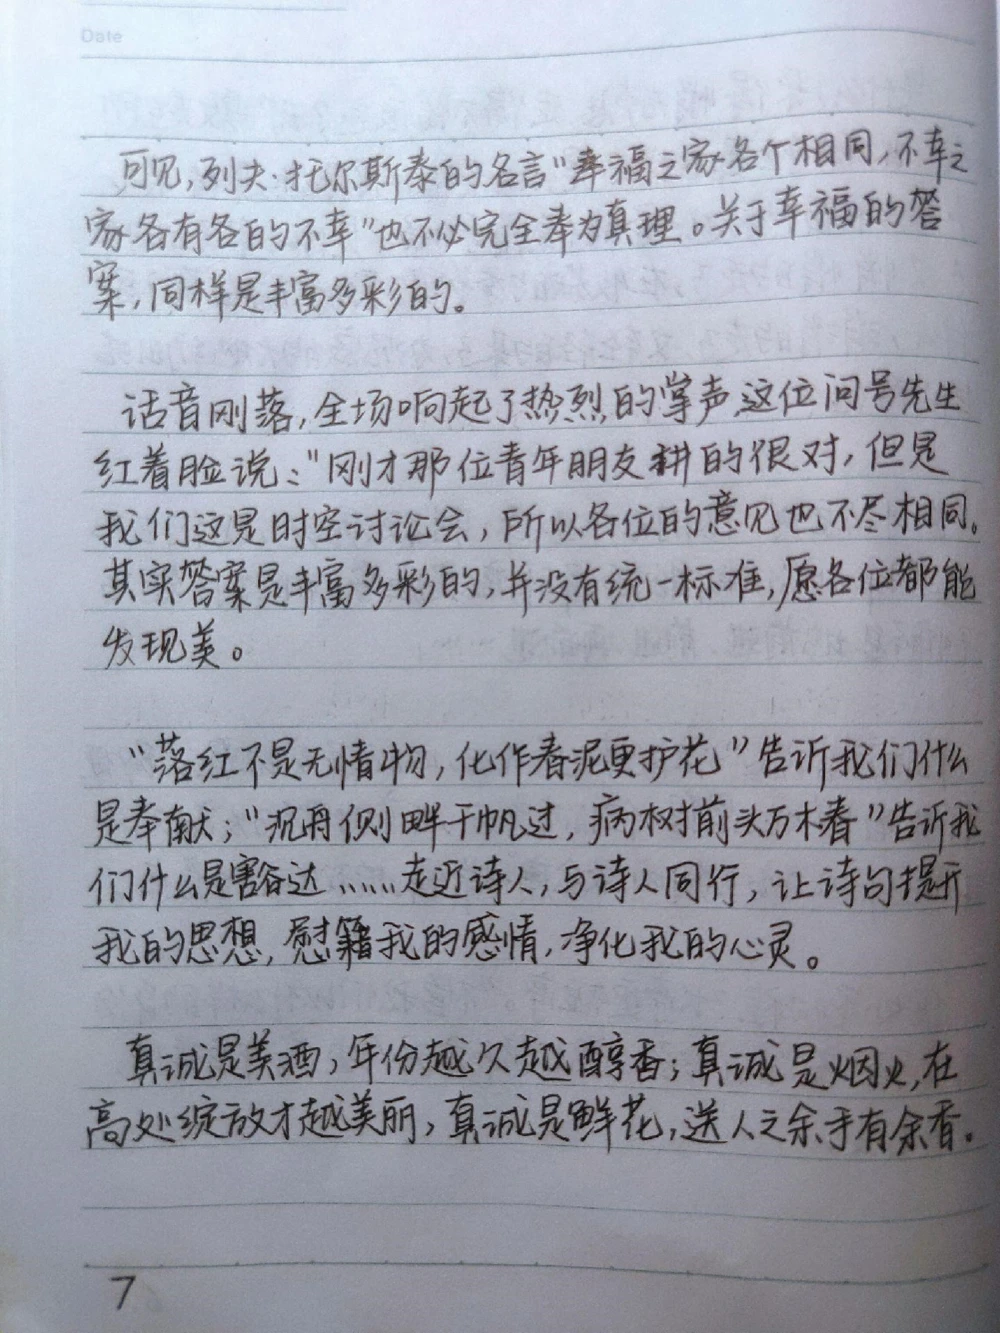 Date
可见,列夫·托尔斯泰的名言"幸福之家各个相同,不幸之
家各有各的不幸"也不必完全奉为真理。关于幸福的答
案,同样是丰富多彩的。
话音刚落,全场响起了热烈的掌声,这位问号先生
红着脸说:"刚才那位青年朋友讲的很对,但是
我们这是时空讨论会,所以各位的意见也不尽相同。
其实答案是丰富多彩的,并没有统一标准,愿各位都能
发现美。
"落红不是无情物,化作春泥更护花"告诉我们什么
是奉献;"沉舟侧畔千帆过,病树前头万木春"告诉我
们什么是豁达……走近诗人,与诗人同行,让诗句提升
我的思想,慰籍我的感情,净化我的心灵。
真诚是美酒,年份越久越醇香;真诚是烟火,在
高处绽放才越美丽,真诚是鲜花,送人之余手有余香。
7